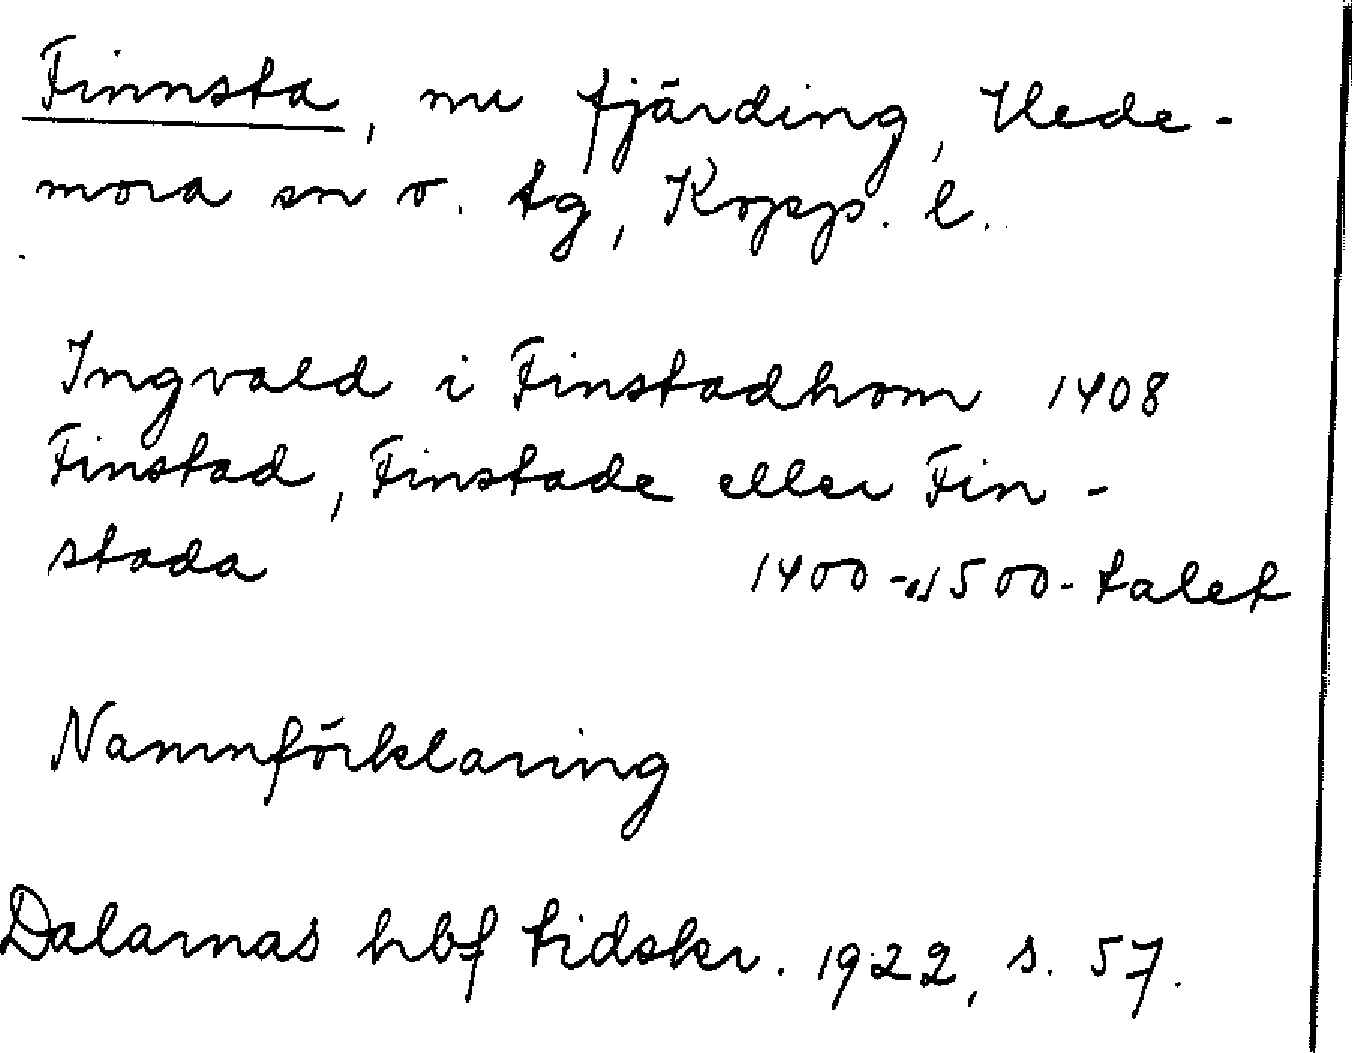 Finnsta, nu fjärding, Hede-
mora sn o. tg, Kopp. l.
Ingvald i Finstadhom 1408
Finstad, Finstade eller Fin-
stada 1400-1500-talet
Namnförklaring
Dalarnas hbf tidskr. 1922, s. 57.